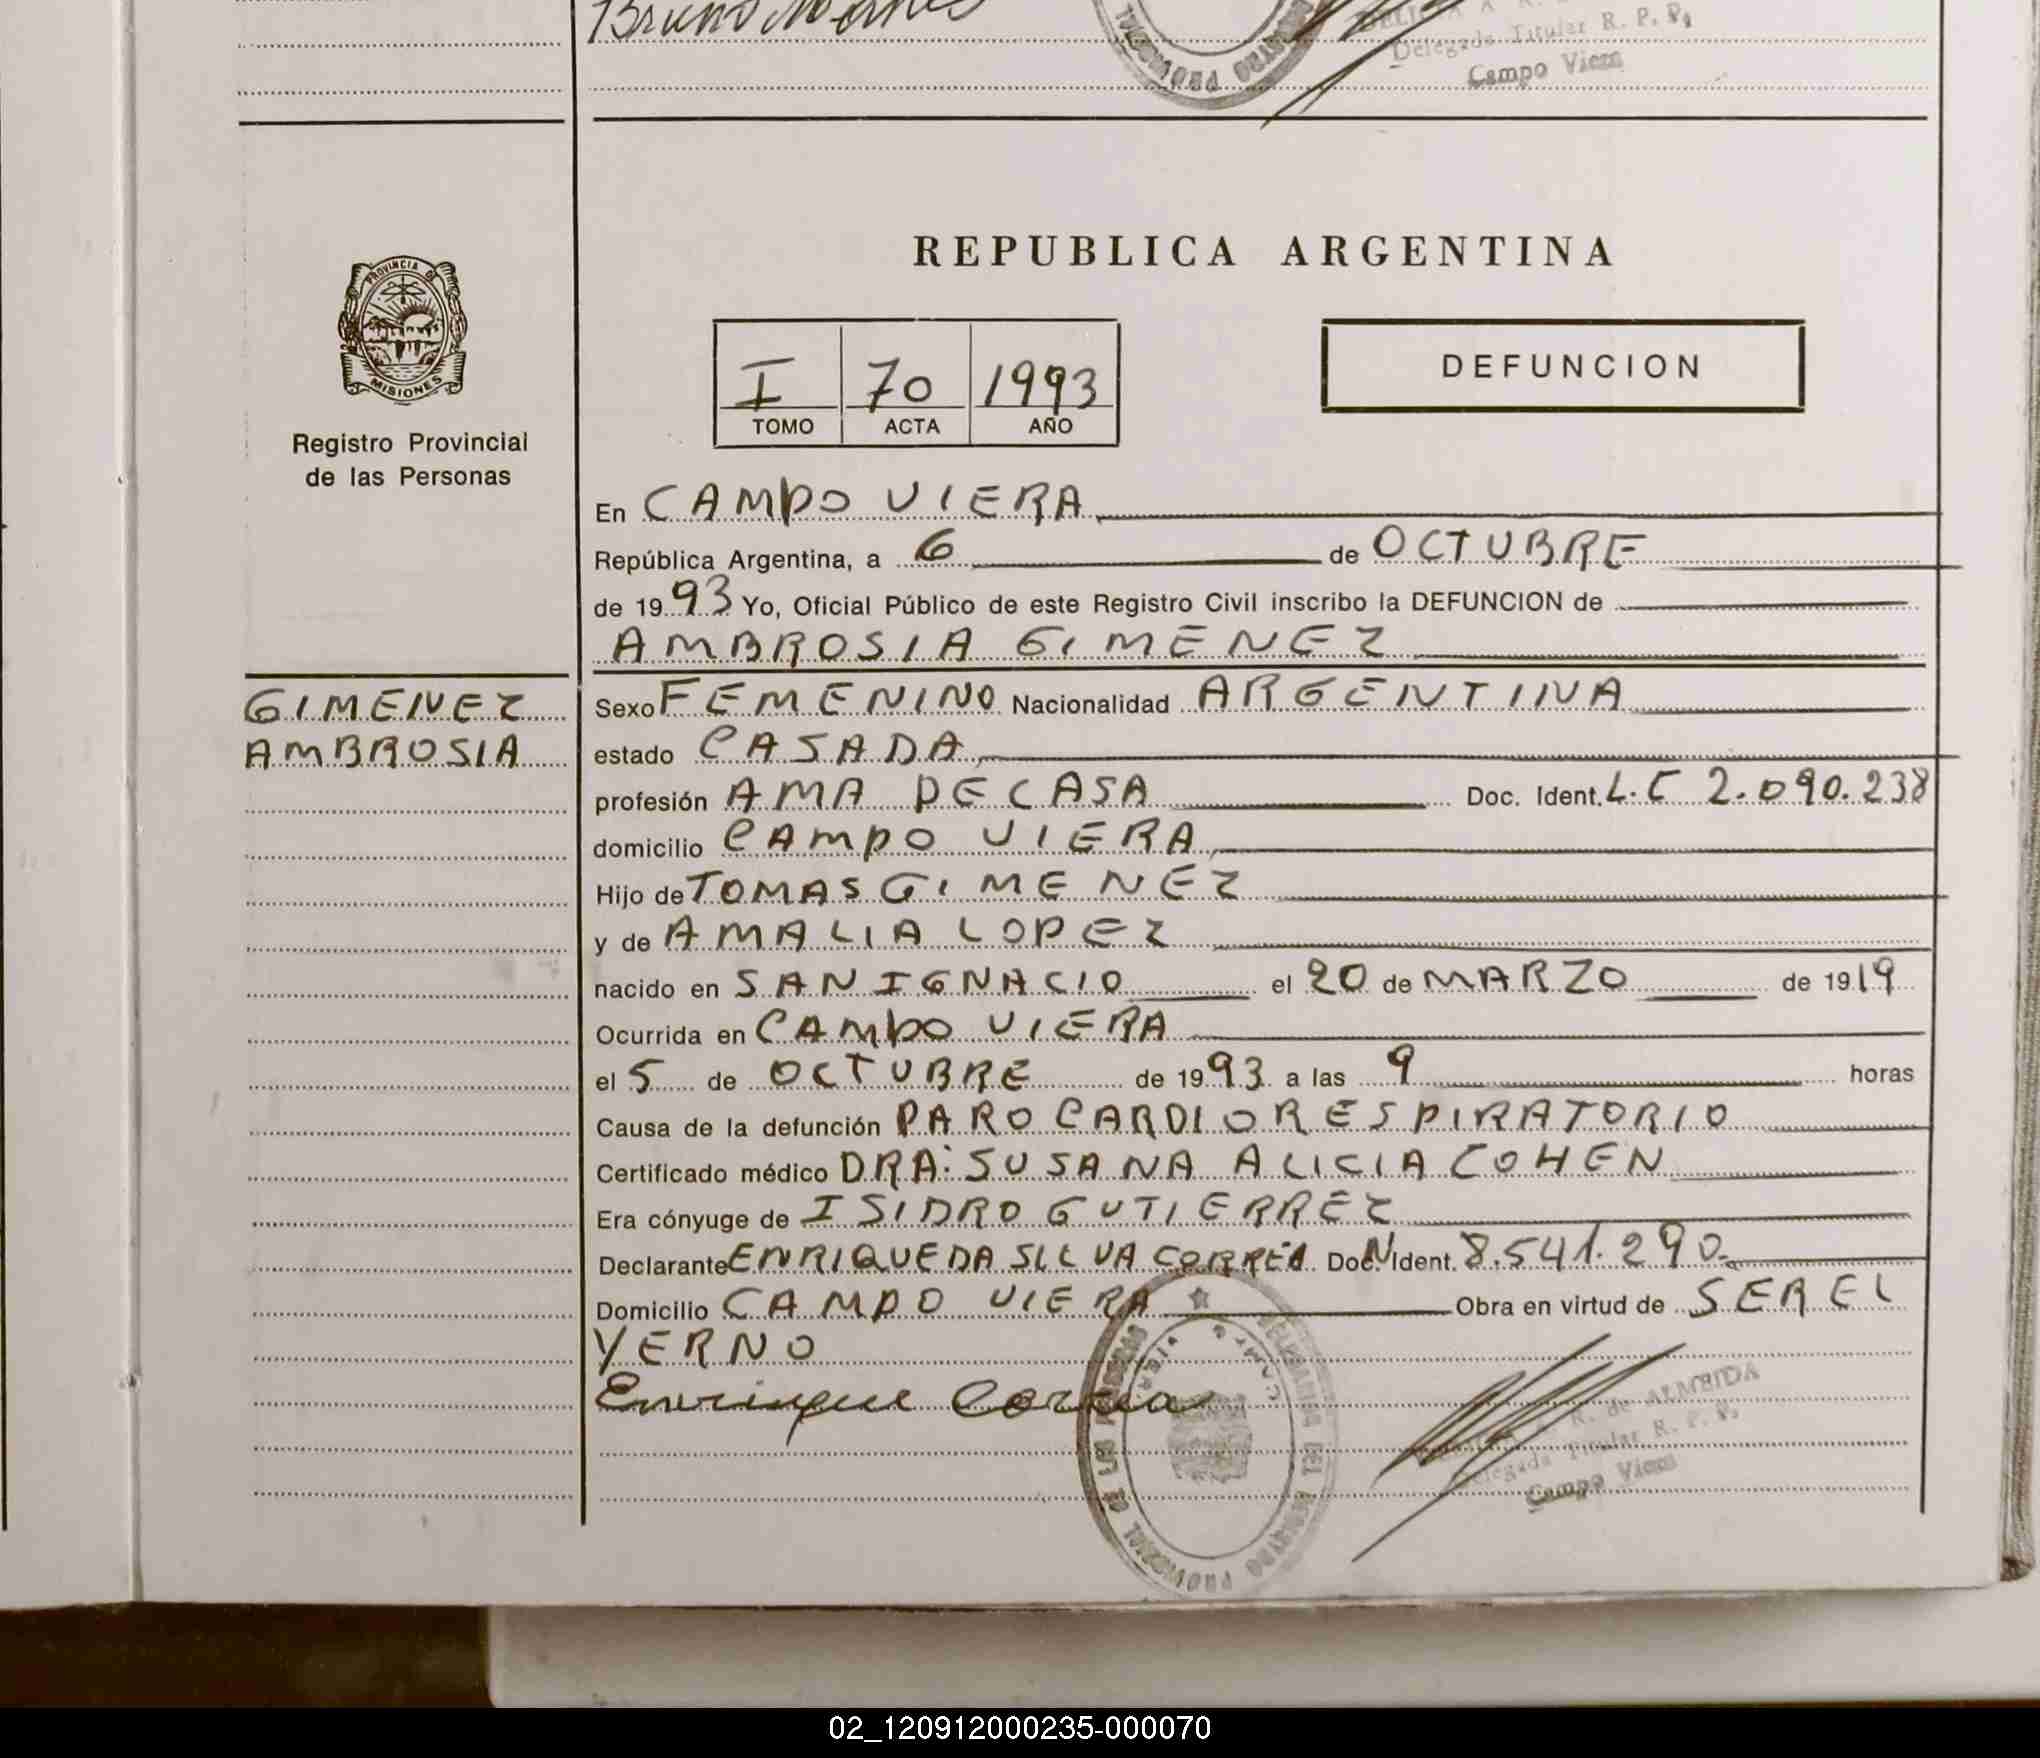 Delegada Titular R. P. P.
Campo Viera
REPUBLICA ARGENTINA
PROVINCIA D
MISIONES
Registro Provincial
de las Personas
I 70 1993
TOMO ACTA AÑO
DEFUNCION
En CAMPO VIERA
República Argentina, a 6 de OCTUBRE
de 1993 Yo, Oficial Público de este Registro Civil inscribo la DEFUNCION de
AMBROSIA GIMENEZ
GIMENEZ
AMBROSIA
Sexo FEMENINO Nacionalidad ARGENTINA
estado CASADA
profesión AMA DE CASA Doc. Ident. L.C 2.090.238
domicilio CAMPO VIERA
Hijo de TOMAS GIMENEZ
y de AMALIA LOPEZ
nacido en SAN IGNACIO el 20 de MARZO de 1919
Ocurrida en CAMPO VIERA
el 5 de OCTUBRE de 1993 a las 9 horas
Causa de la defunción PARO CARDIORESPIRATORIO
Certificado médico DRA: SUSANA ALICIA COHEN
Era cónyuge de ISIDRO GUTIERREZ
Declarante ENRIQUE DA SILVA CORREA Doc. Ident. 8.541.290
Domicilio CAMPO VIERA Obra en virtud de SER EL
YERNO
Enrique Correa
R. de ALMEIDA
Delegada Titular R. P. P.
Campo Viera
02_120912000235-000070